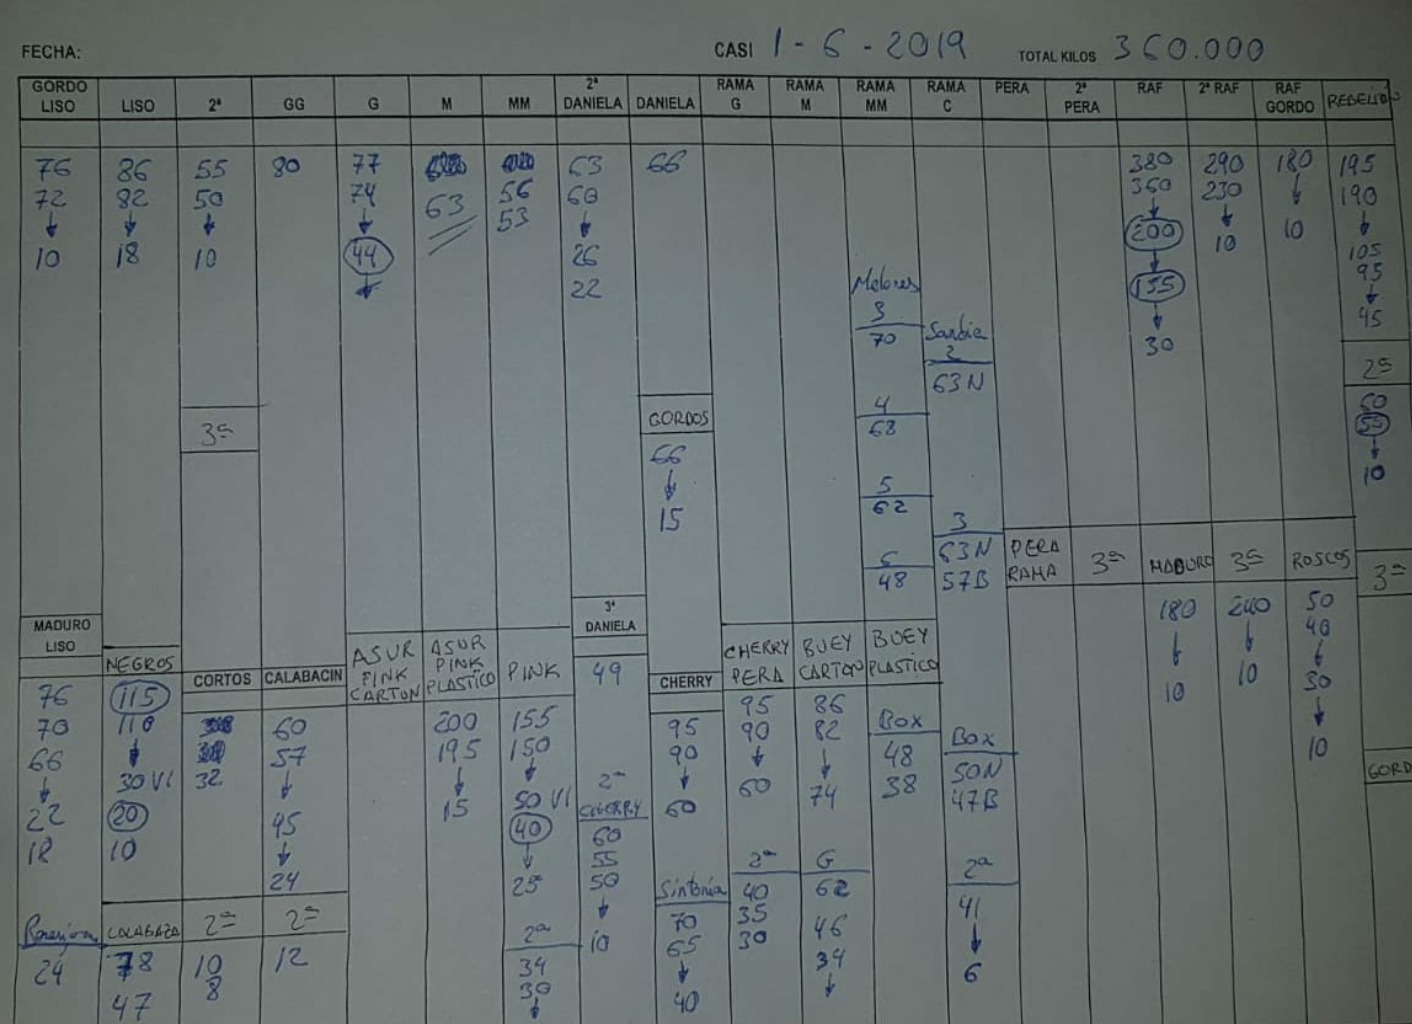 FECHA: CASI 1-6-2019 TOTAL KILOS 360.000
GORDO LISO LISO 2ª GG G M MM 2ª DANIELA DANIELA RAMA G RAMA M RAMA MM RAMA C PERA 2ª PERA RAF 2ª RAF RAF GORDO REBELION
76 86 55 80 77 63 66 380 290 180 195
72 82 50 74 63 56 60 360 230 190
53
10 18 10 44 26 200 10 10 105
22 95
Melones 155
3 45
70 Sandia 30
2 2ª
63N
4 GORDOS 60
68 55
3ª
66 10
5
62
15 3
6 63N PERA RAMA 3ª MADURO 3ª ROSCOS 3ª
48 57B
3ª DANIELA 180 240 50
40
MADURO LISO NEGROS CORTOS CALABACIN ASUR PINK CARTON ASUR PINK PLASTICO PINK 49 CHERRY CHERRY PERA BUEY CARTON BUEY PLASTICO 10 10 30
10
76 115 60 200 155 95 95 86 Box
70 110 57 195 150 90 90 82 48 Box
66 30 VI 32 38 50N GORD
22 20 45 15 50 VI 2ª CHERRY 60 60 74 47B
18 10 40 60
24 55 2ª G 2ª
25 50 Sintonia 40 62 41
CALABAZA 2ª 2ª 2ª 10 70 35 46
24 78 10 12 34 65 30 34 6
47 8 30 40